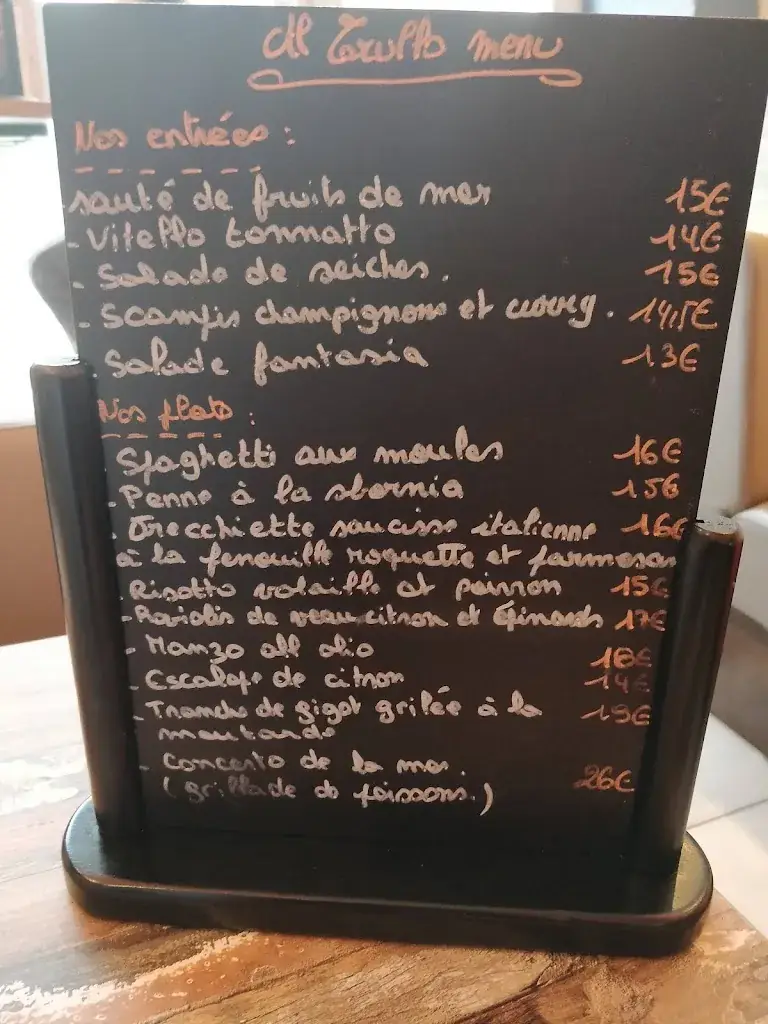 Al Trullo menu
Nos entrées :
sauté de fruits de mer 15€
- Vitello tonnatto 14€
- Salade de seiches. 15€
- Scampis champignons et courg. 14,5€
Salade fantasia 13€
Nos plats :
Spaghetti aux moules 16€
- Penne à la sbornia 15€
. Orecchiette saucisse italienne 16€
à la fenouille roquette et parmesan
. Risotto volaille et poivron 15€
- Raviolis de veau, citron et épinards 17€
- Manzo all olio 18€
- Escalope de citron 14€
- Tranche de gigot grillée à la 19€
moutarde
- Concerto de la mer.
(grillade de poissons.) 26€